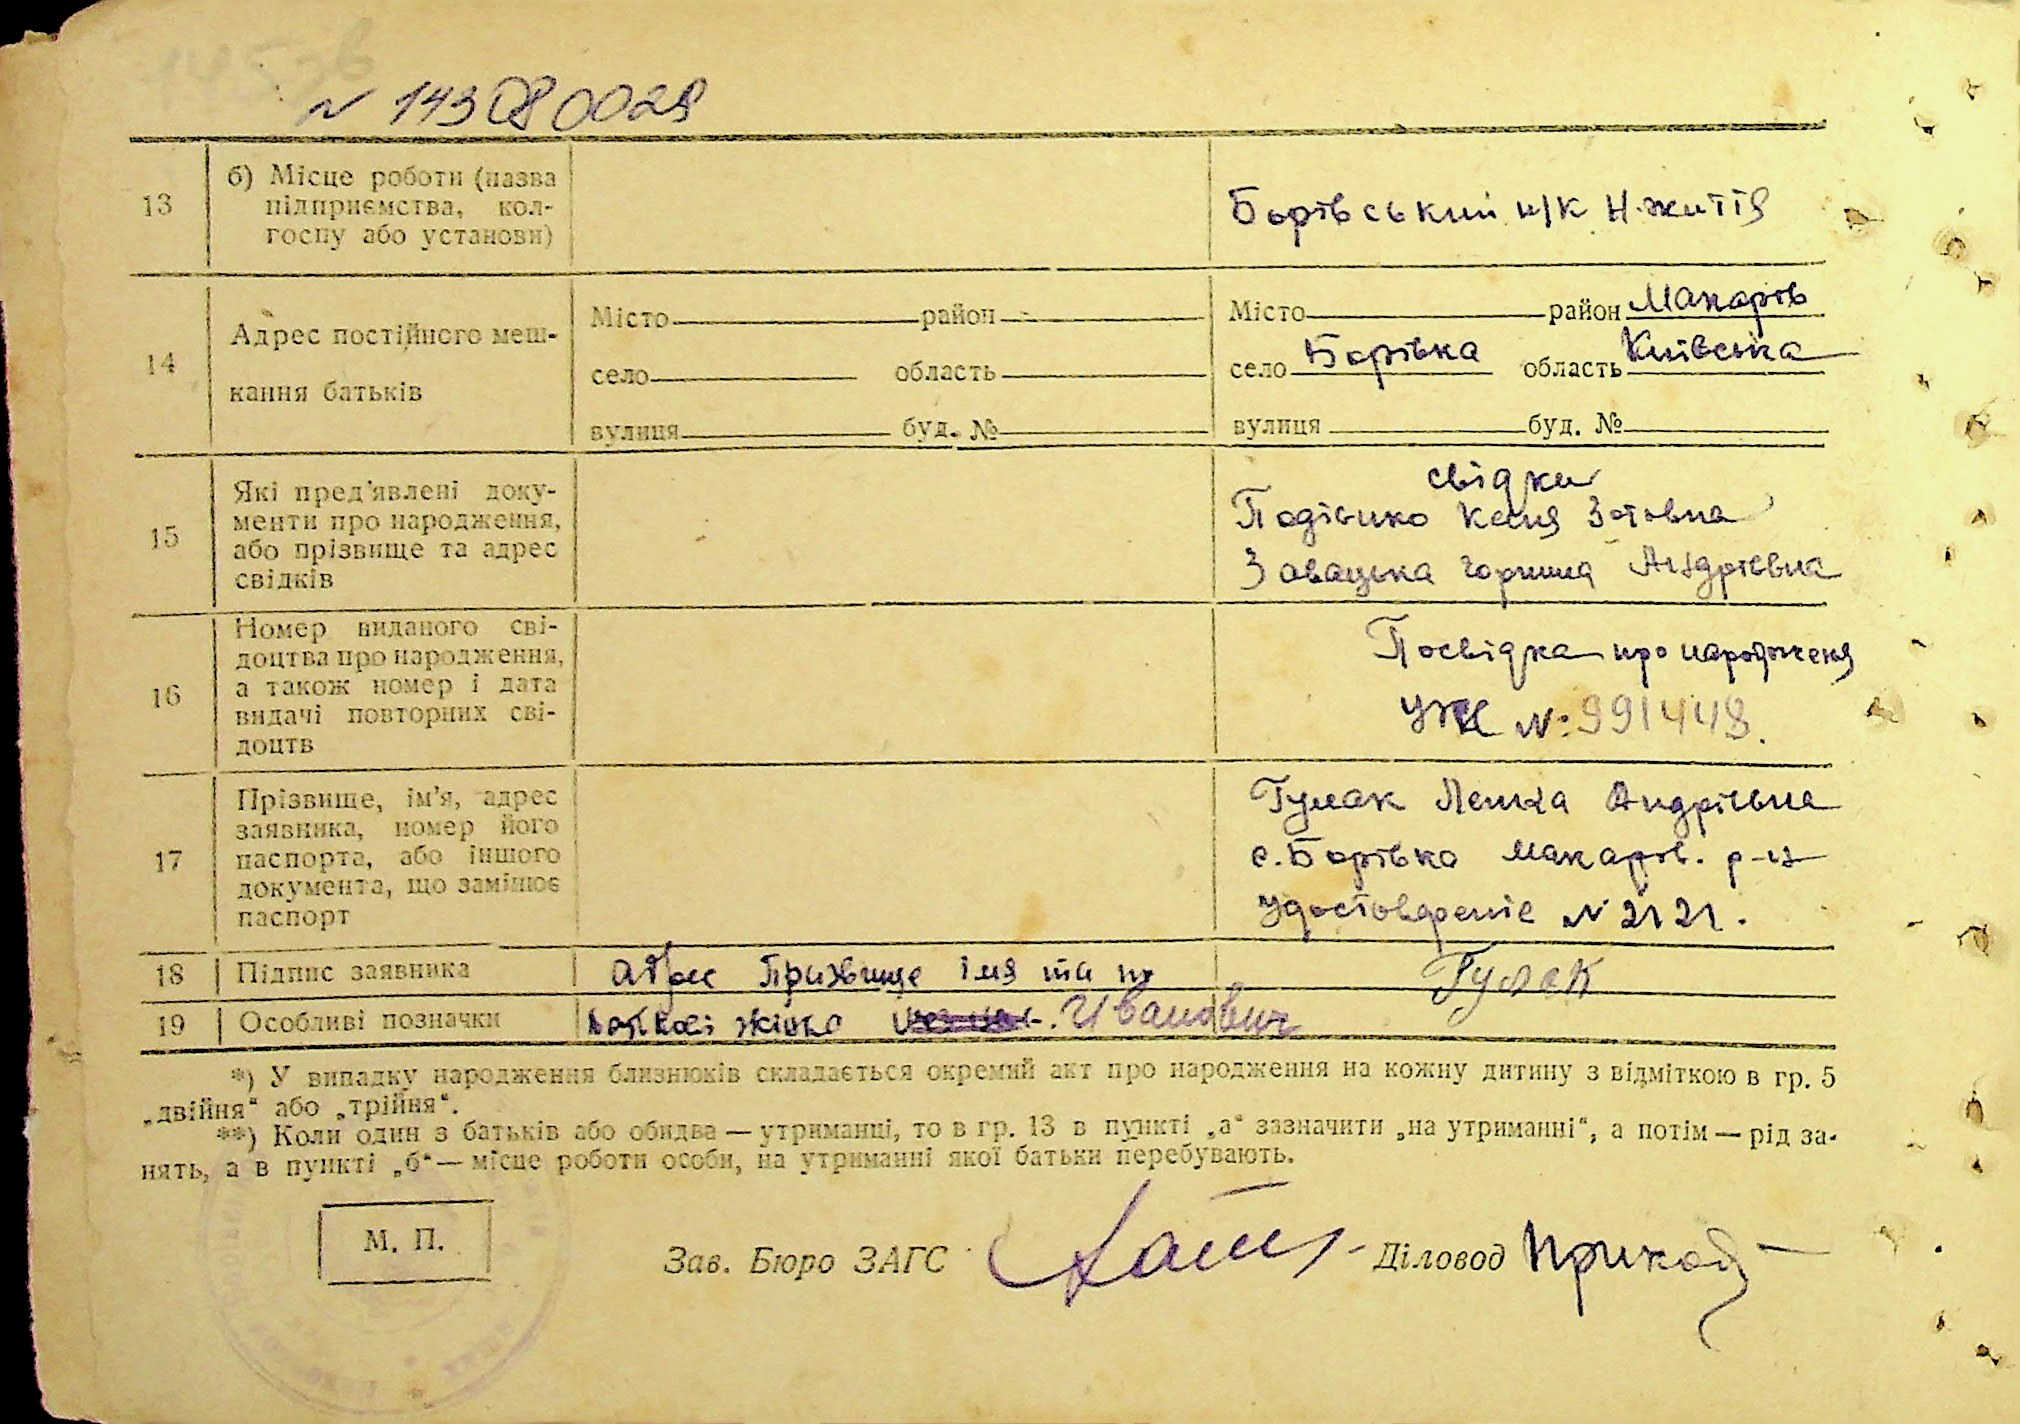 N 143
13
б) Місце роботи (назва
підприємства, кол-
госпу або установи)
Борівський к/к Н-життія
14
Адрес постійного меш-
кання батьків
Місто район
село область
вулиця буд. №
Місто район Макарів
село Борівка область Київська
вулиця буд. №
15
Які пред'явлені доку-
менти про народження,
або прізвище та адрес
свідків
свідки
Зотовна
Андріевна
16
Номер виданого сві-
доцтва про народження,
а також номер і дата
видачі повторних сві-
доцтв
Посвідка про народженя
№: 991448.
17
Прізвище, ім'я, адрес
заявника, номер його
паспорта, або іншого
документа, що замінює
паспорт
Гулак Андріевна
с. Борівка Макарів. р-н
N 2121.
18
Підпис заявника
Адрес імя та
Гулак
19
Особливі позначки
Іванович
*) У випадку народження близнюків складається окремий акт про народження на кожну дитину з відміткою в гр. 5
„двійня“ або „трійня“.
**) Коли один з батьків або обидва — утриманці, то в гр. 13 в пункті „а“ зазначити „на утриманні“, а потім — рід за-
нять, а в пункті „б“ — місце роботи особи, на утриманні якої батьки перебувають.
М. П.
Зав. Бюро ЗАГС
Діловод